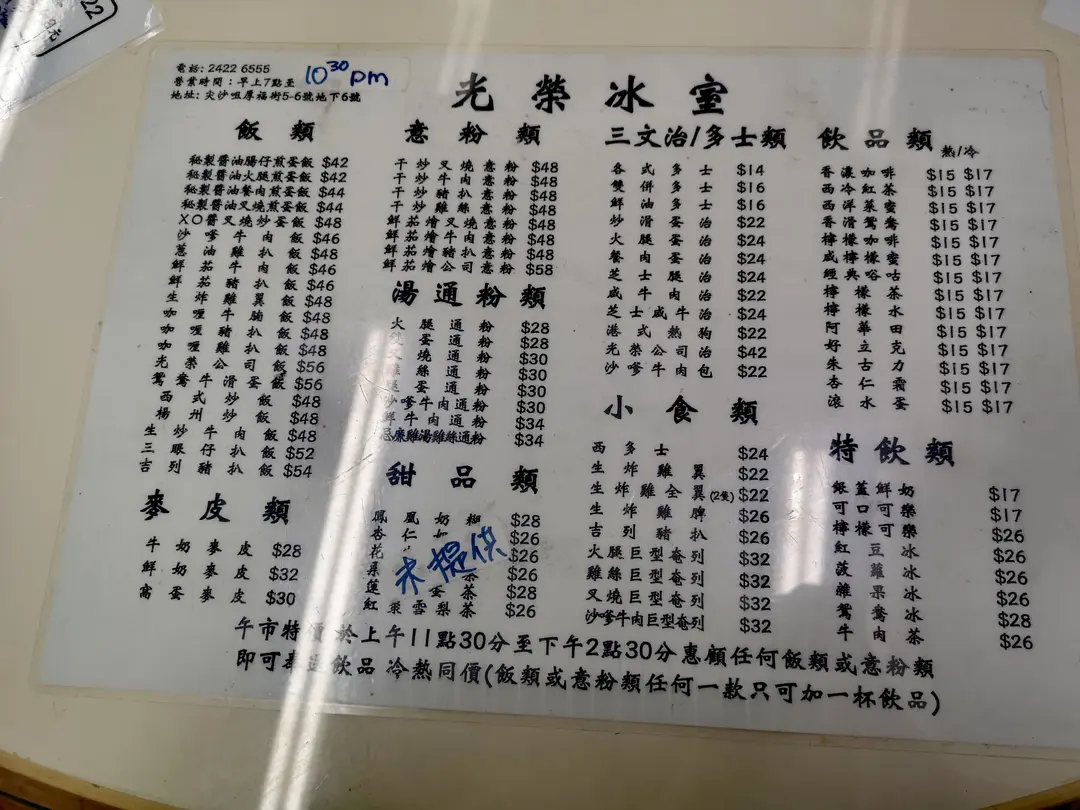 電話: 2422 6555
營業時間：早上7點至 10³⁰ pm
地址: 尖沙咀厚福街5-6號地下6號
光榮冰室
飯類
秘製醬油腸仔煎蛋飯 $42
秘製醬油火腿煎蛋飯 $42
秘製醬油餐肉煎蛋飯 $44
秘製醬油叉燒煎蛋飯 $44
XO醬叉燒炒蛋飯 $48
沙嗲牛肉飯 $46
蔥油雞扒飯 $48
鮮茄牛肉飯 $46
鮮茄豬扒飯 $48
生炸雞翼飯 $48
咖喱牛腩飯 $48
咖喱豬扒飯 $48
咖喱雞扒飯 $48
光榮公司飯 $56
鴛鴦牛滑蛋飯 $56
西式炒飯 $48
楊州炒飯 $48
生炒牛肉飯 $48
三眼仔飯 $52
吉列豬扒飯 $54
麥皮類
牛奶麥皮 $28
鮮奶麥皮 $32
窩蛋麥皮 $30
意粉類
干炒叉燒意粉 $48
干炒牛肉意粉 $48
干炒豬扒意粉 $48
干炒雞絲意粉 $48
鮮茄燴叉燒意粉 $48
鮮茄燴牛肉意粉 $48
鮮茄燴豬扒意粉 $48
鮮茄燴公司意粉 $58
湯通粉類
火腿通粉 $28
蛋通粉 $28
燒通粉 $30
絲通粉 $30
蛋通粉 $30
沙嗲牛肉通粉 $30
鮮牛肉通粉 $34
忌廉雞湯雞絲通粉 $34
甜品類
鳳凰奶糊 $28
杏仁 $26
花 $26
茶 $26
蓮 蛋茶 $28
紅 雪梨茶 $26
未提供
三文治/多士類
各式多士 $14
雙併多士 $16
鮮油多士 $16
炒滑蛋治 $22
火腿蛋治 $24
餐肉蛋治 $24
芝士腿治 $24
咸牛肉治 $22
芝士咸牛治 $24
港式熱狗 $22
光榮公司治 $42
沙嗲牛肉包 $22
小食類
西多士 $24
生炸雞翼 $22
生炸雞全翼(2隻) $22
生炸雞脾 $26
吉列豬扒 $26
火腿巨型奄列 $32
雞絲巨型奄列 $32
叉燒巨型奄列 $32
沙嗲牛肉巨型奄列 $32
飲品類 熱/冷
香濃咖啡 $15 $17
西冷紅茶 $15 $17
西洋菜蜜 $15 $17
香滑鴛鴦 $15 $17
檸檬咖啡 $15 $17
咸檸檬蜜 $15 $17
經典唂咕 $15 $17
檸檬茶 $15 $17
檸檬水 $15 $17
阿華田 $15 $17
好立克 $15 $17
朱古力 $15 $17
杏仁霜 $15 $17
滾水蛋 $15 $17
特飲類
銀蓋鮮奶 $17
可口可樂 $17
檸檬可樂 $26
紅豆冰 $26
菠蘿冰 $26
雜果冰 $26
鴛鴦冰 $28
牛肉茶 $26
午市特價於上午11點30分至下午2點30分惠顧任何飯類或意粉類
即可奉送飲品 冷熱同價(飯類或意粉類任何一款只可加一杯飲品)